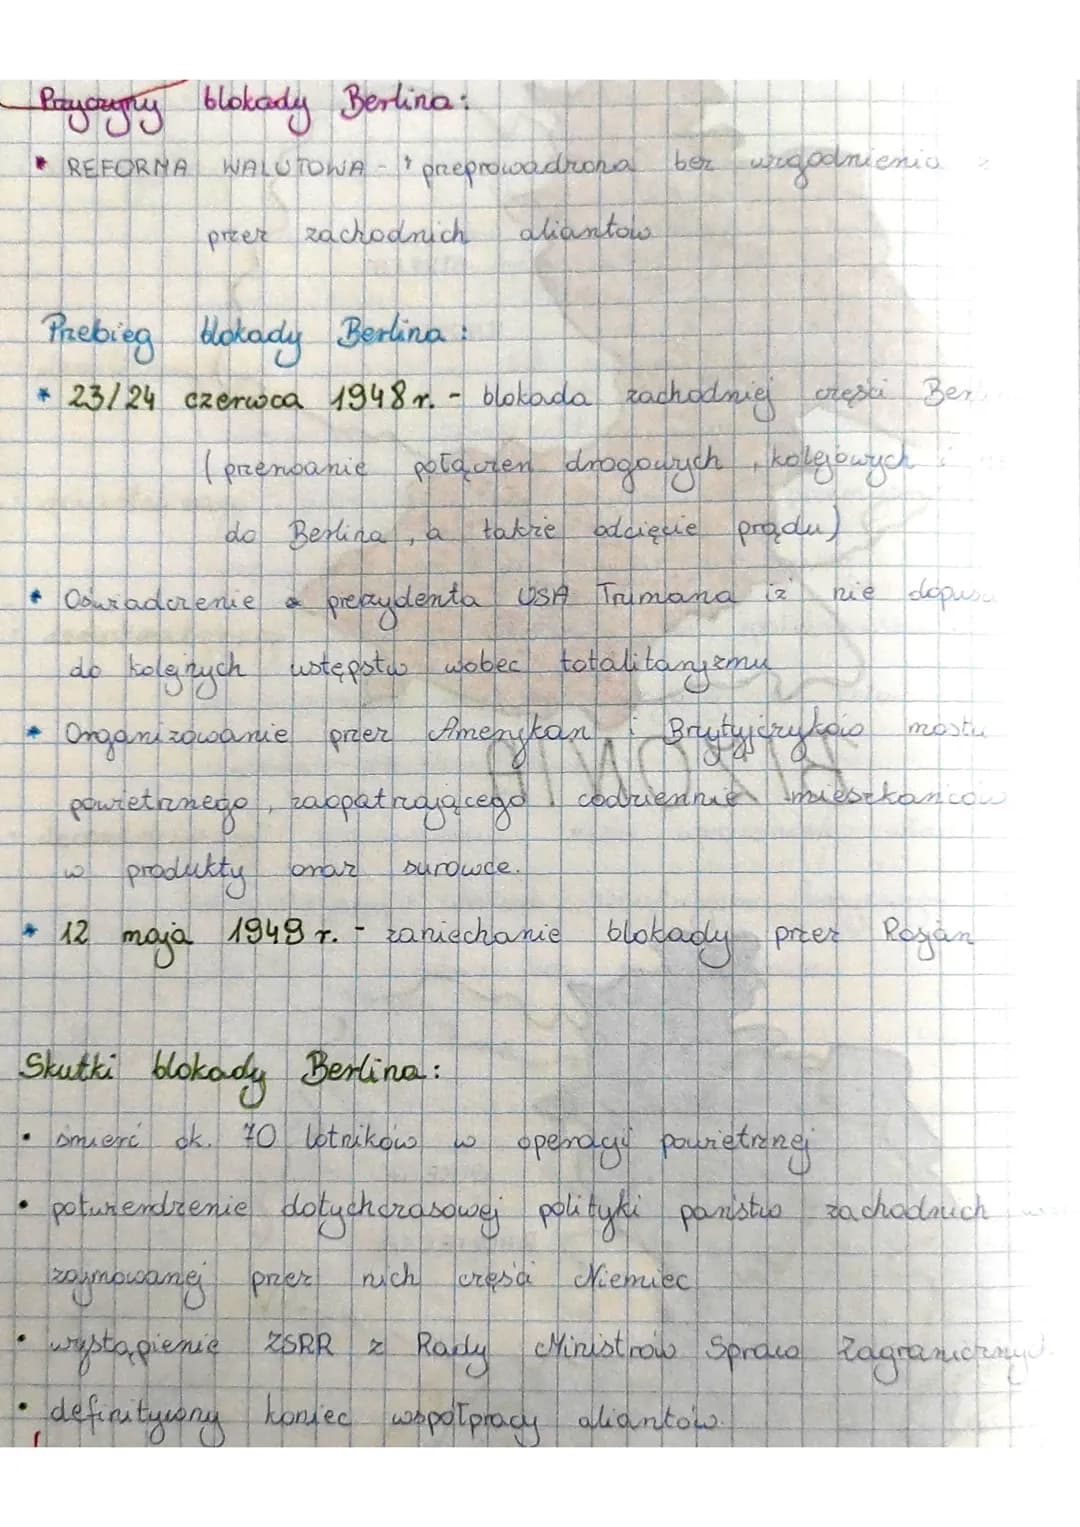 Przyczyny blokady Berlina:
* REFORMA WALUTOWA - przeprowadzona bez uzgodnienia z
przez zachodnich aliantów
Przebieg blokady Berlina:
* 23/24 czerwca 1948 r. - blokada zachodniej części Ber
(przerwanie połączeń drogowych, kolejowych i
do Berlina, a także odcięcie prądu)
* Oświadczenie prezydenta USA Trumana iż nie dopuś
do kolejnych ustępstw wobec totalitaryzmu
* Organizowanie przez Amerykan i Brytyjczyków mostu
powietrznego, zaopatrującego codziennie mieszkańców
w produkty oraz surowce.
* 12 maja 1949 r. - zaniechanie blokady przez Rosjan
Skutki blokady Berlina:
• śmierć ok. 70 lotników w operacji powietrznej
• potwierdzenie dotychczasowej polityki państw zachodnich
zajmowanej przez nich części Niemiec
• wystąpienie ZSRR z Rady Ministrów Spraw Zagranicznych
• definitywny koniec współpracy aliantów.